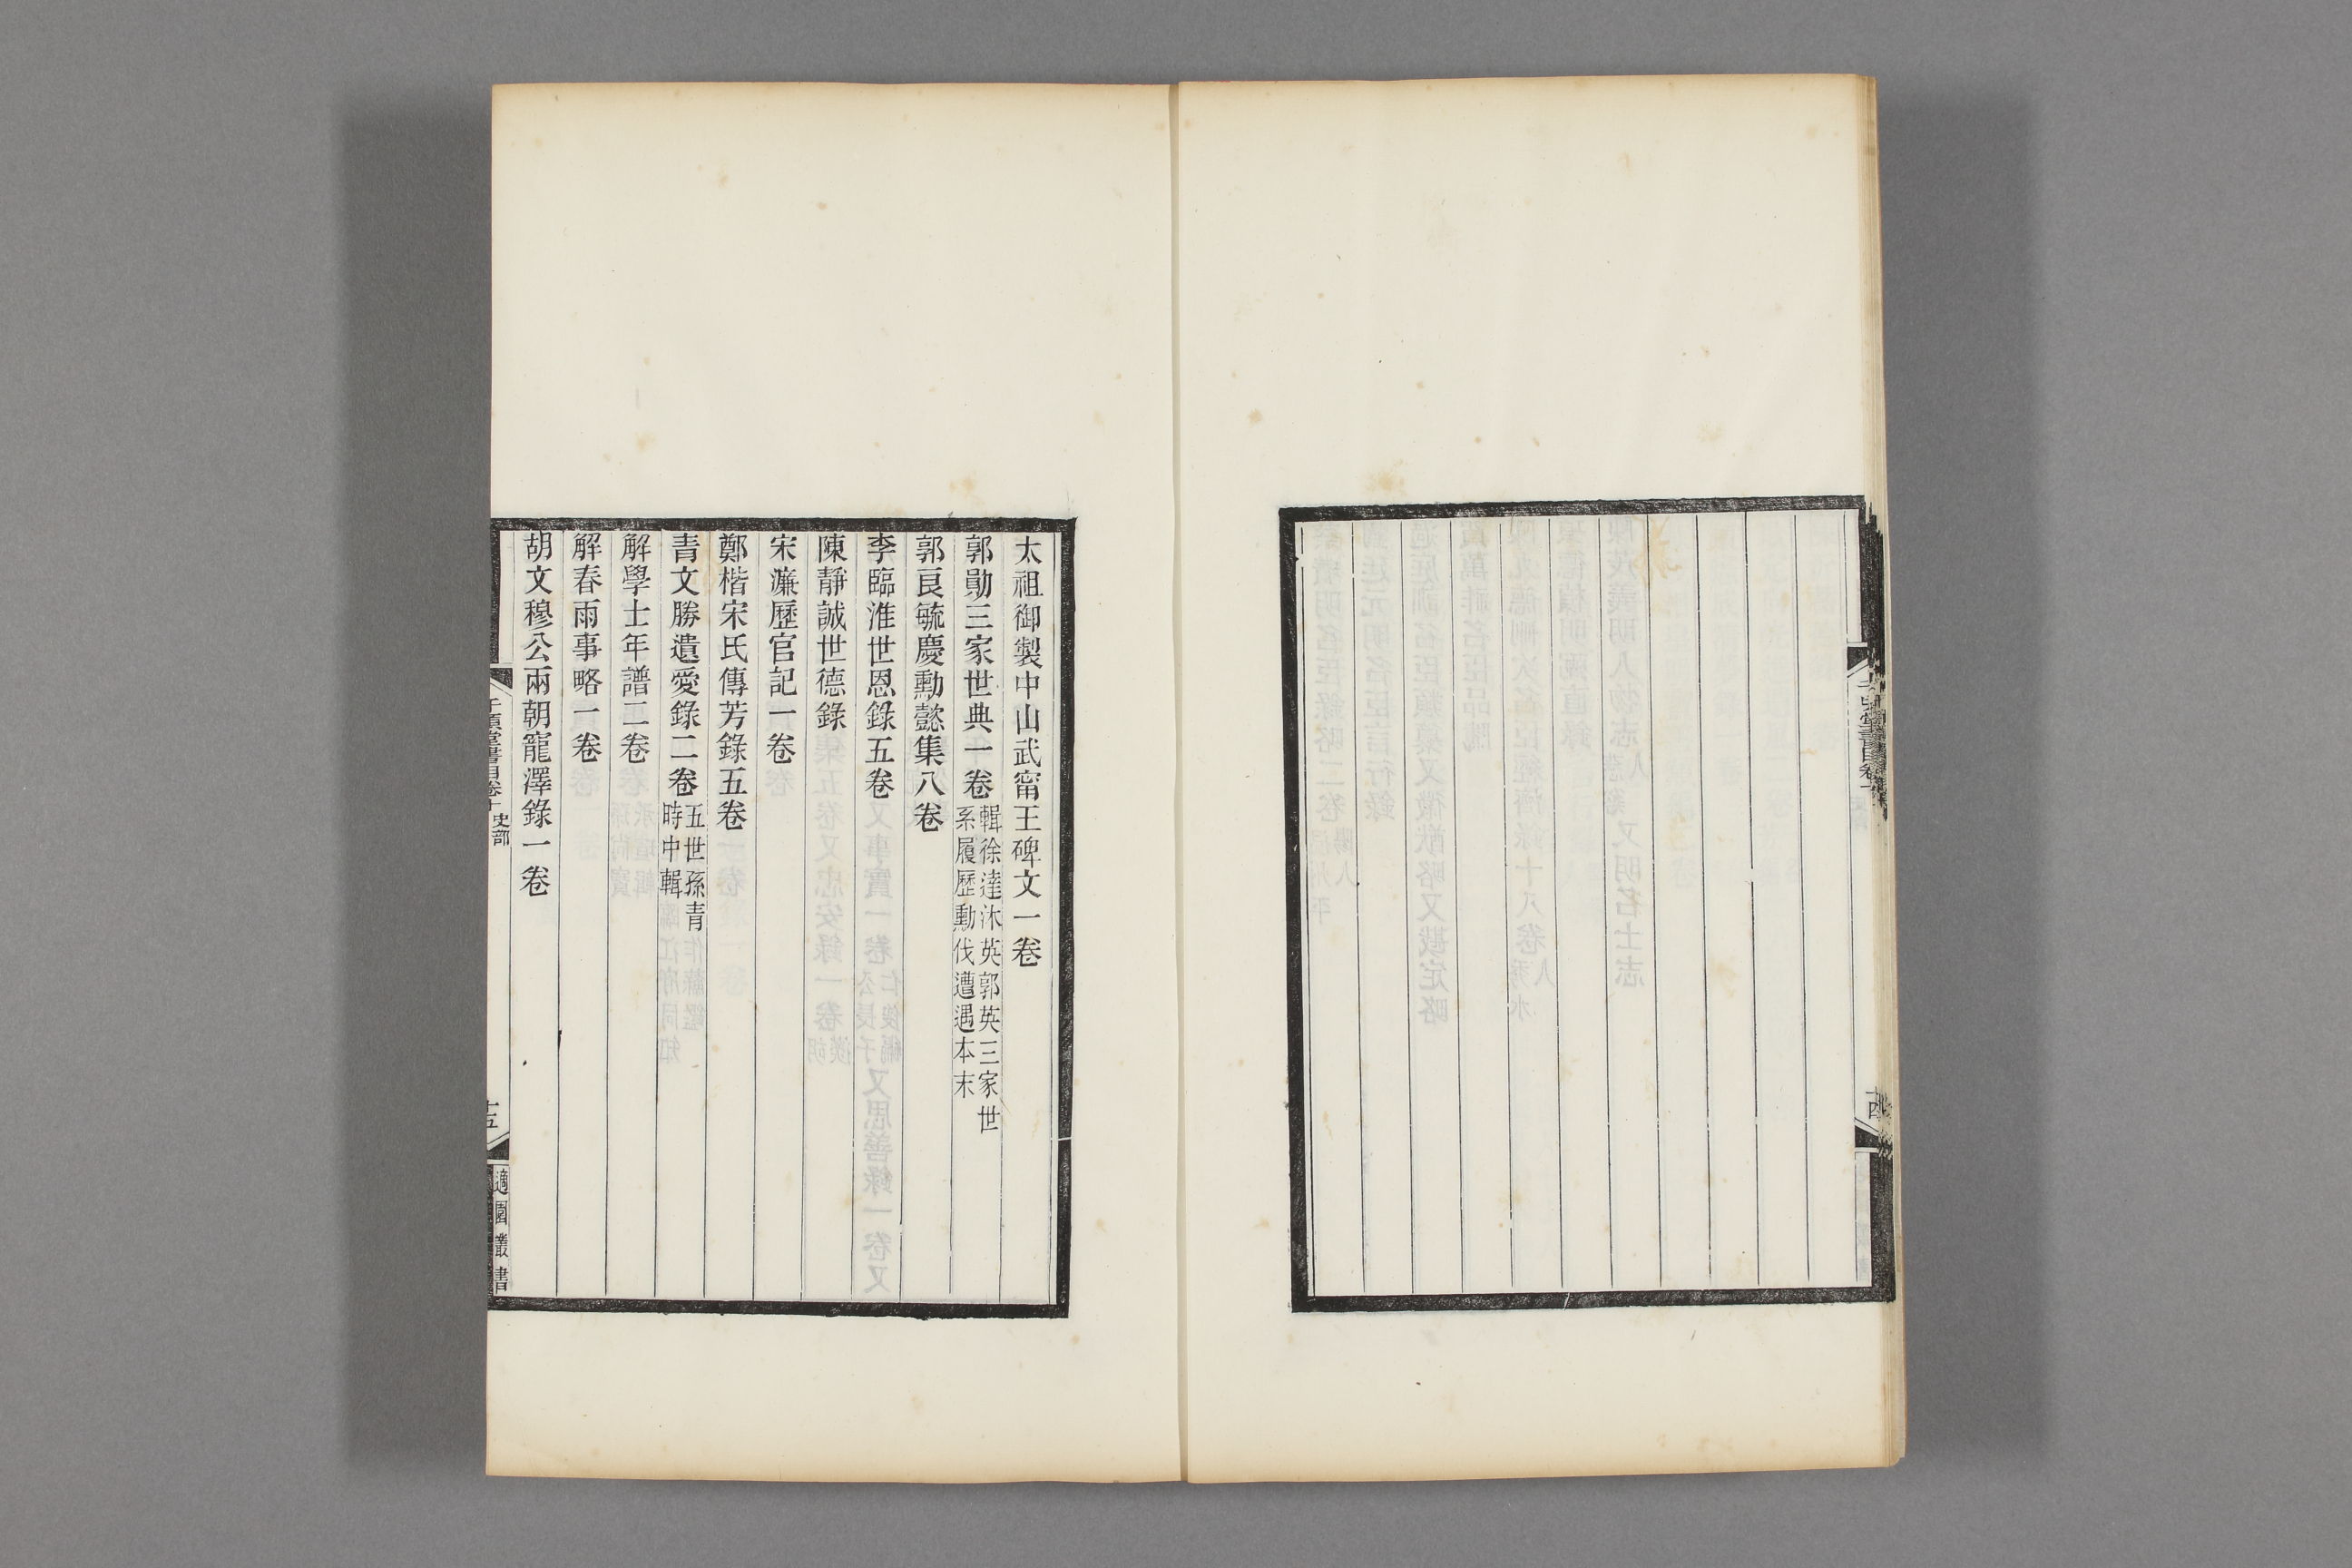 太祖御製中山武甯王碑文一卷
郭勛三家世典一卷輯徐達沐英郭英三家世系履歷勳伐遭遇本末
郭良毓慶勳懿集八卷
李臨淮世恩錄五卷
陳靜誠世德錄
宋濂歷官記一卷
鄭楷宋氏傳芳錄五卷
青文勝遺愛錄二卷五世孫青時中輯
解學士年譜二卷
解春雨事略一卷
胡文穆公兩朝寵澤錄一卷
千頃堂書目卷十 史部
十五
適園叢書